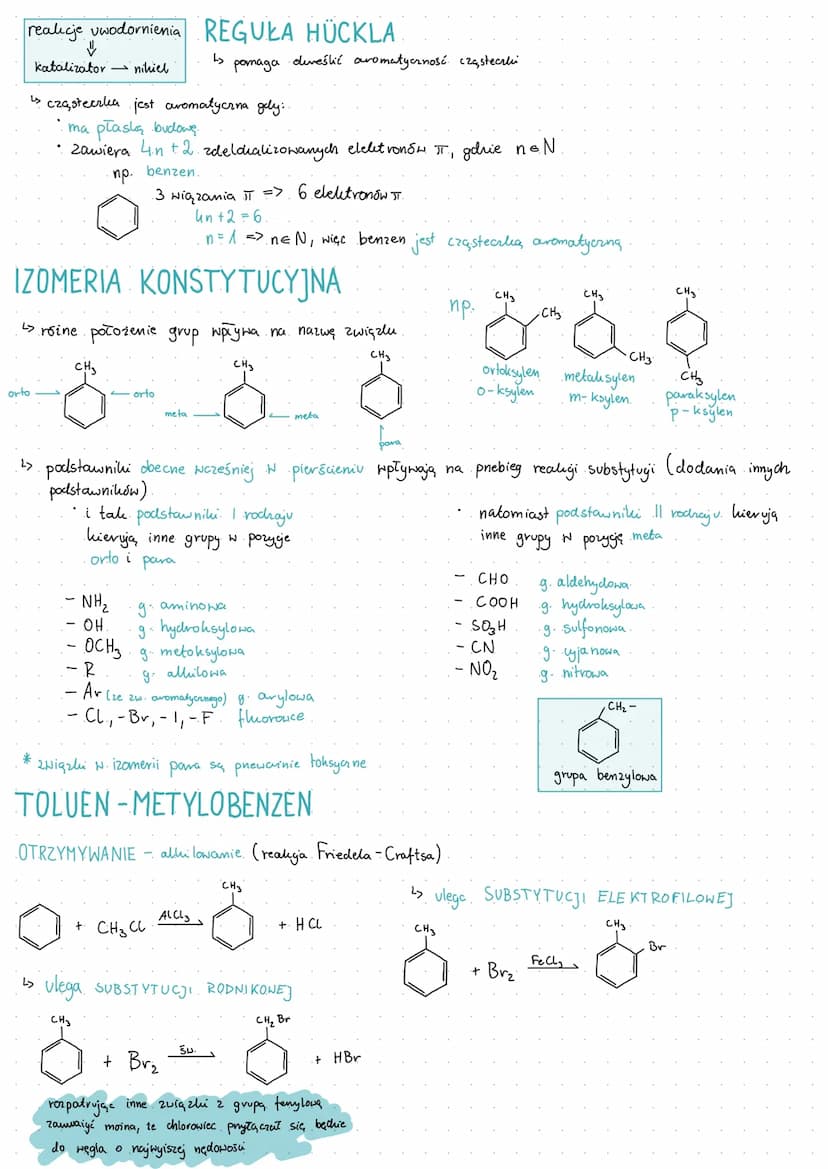 reakcje uwodornienia
⇓
katalizator → nikiel
REGUŁA HÜCKLA
↳ pomaga określić aromatyczność cząsteczki
↳ cząsteczka jest aromatyczna gdy:
• ma płaską budowę
• zawiera 4n+2 zdelokalizowanych elektronów π, gdzie n∈N
np. benzen
3 wiązania π => 6 elektronów π
4n+2=6
n=1 => n∈N, więc benzen jest cząsteczką aromatyczną
IZOMERIA KONSTYTUCYJNA
↳ różne położenie grup wpływa na nazwę związku
CH3
orto → ← orto
CH3
meta → ← meta
CH3
para
np.
CH3
CH3
ortoksylen
o-ksylen
CH3
CH3
metaksylen
m-ksylen
CH3
CH3
paraksylen
p-ksylen
↳ podstawniki obecne wcześniej w pierścieniu wpływają na przebieg reakcji substytucji (dodania innych
podstawników)
• i tak podstawniki I rodzaju
kierują inne grupy w pozycje
orto i para
- NH2 g. aminowa
- OH g. hydroksylowa
- OCH3 g. metoksylowa
- R g. alkilowa
- Ar (ze zw. aromatycznego) g. arylowa
- Cl, -Br, -I, -F fluorowce
• natomiast podstawniki II rodzaju kierują
inne grupy w pozycję meta
- CHO g. aldehydowa
- COOH g. hydroksylowa
- SO3H g. sulfonowa
- CN g. cyjanowa
- NO2 g. nitrowa
CH2-
grupa benzylowa
* związki w izomerii para są przeważnie toksyczne
TOLUEN - METYLOBENZEN
OTRZYMYWANIE - alkilowanie (reakcja Friedela-Craftsa)
+ CH3Cl AlCl3 → CH3 + HCl
↳ ulega SUBSTYTUCJI RODNIKOWEJ
CH3 + Br2 św. → CH2Br + HBr
rozpatrując inne związki z grupą fenylową
zauważyć można, że chlorowiec przyłączał się będzie
do węgla o najwyższej rzędowości
↳ ulega SUBSTYTUCJI ELEKTROFILOWEJ
CH3 + Br2 FeCl3 → CH3 Br